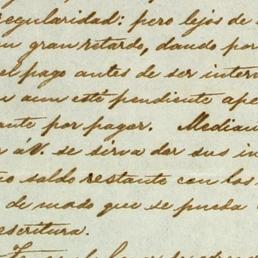 regularidad: pero lejos de
un gran retardo, dando por
el pago antes de ser inter
aun esté pendiente ape
ante, por pagar. Median
aV. se sirva dar sus in
saldo restante con los
de modo que se pueda
escritura.